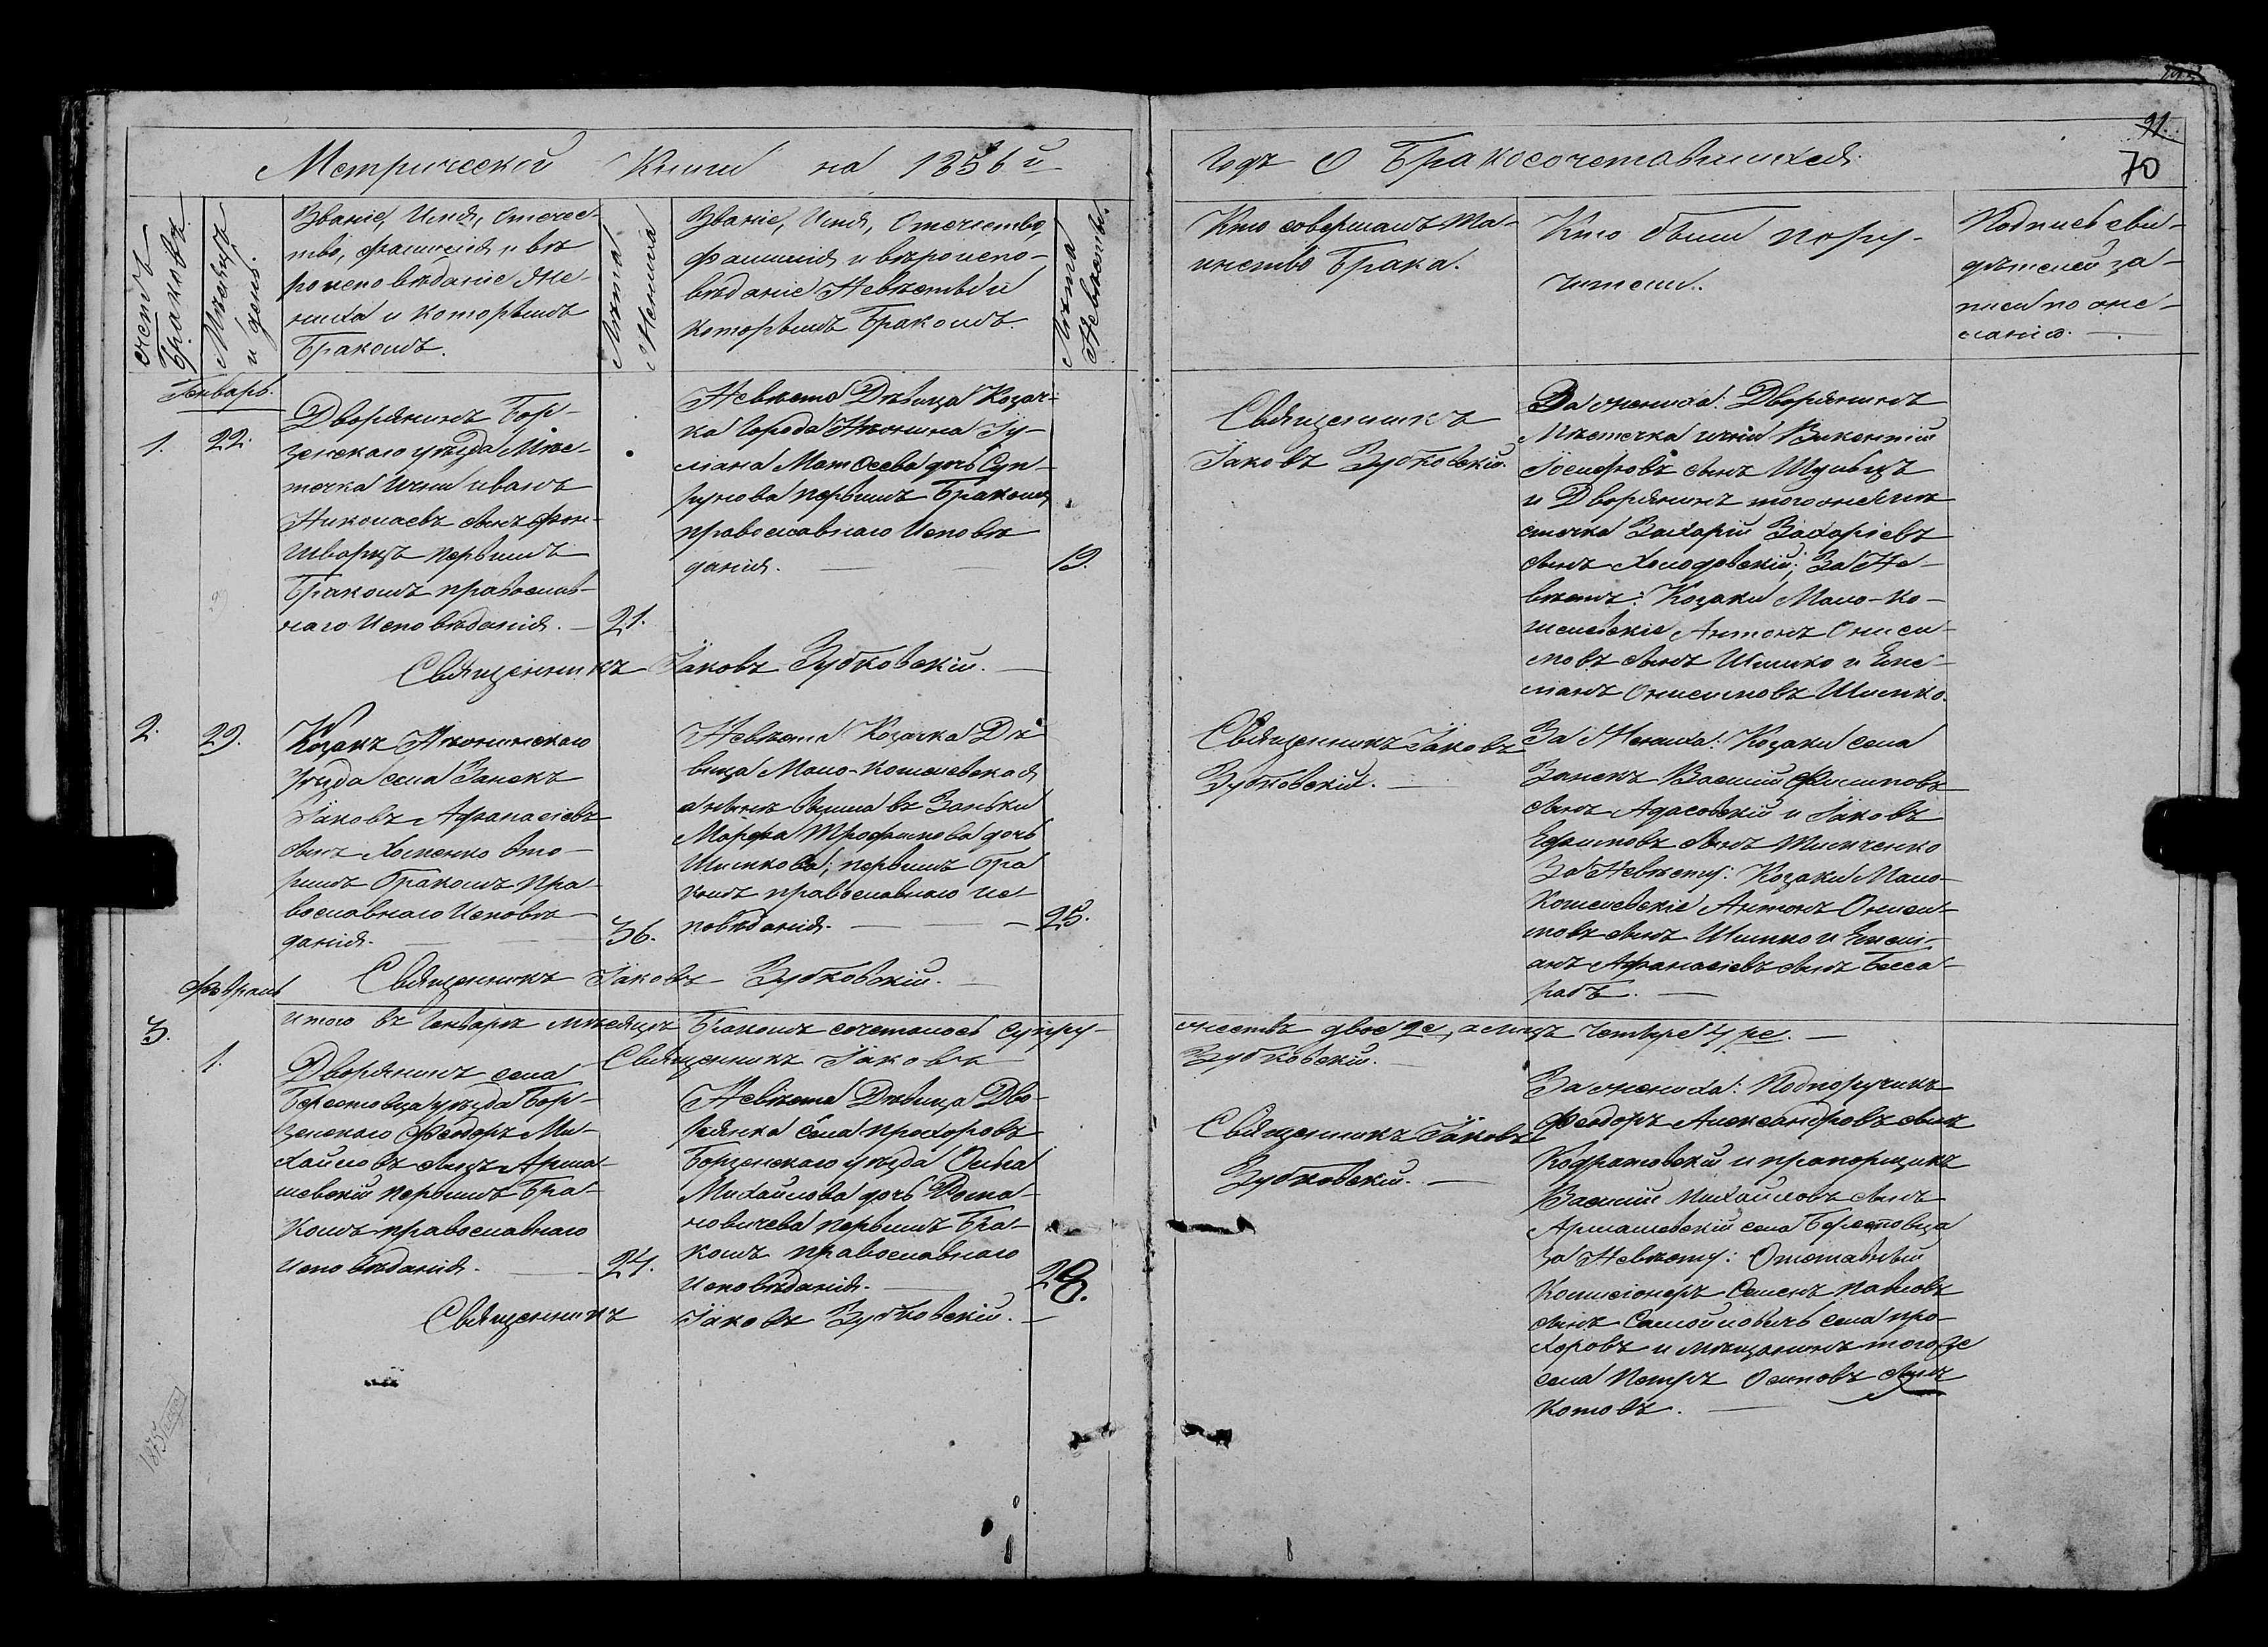 91.
70
Метрической Книги на 1856й
Годъ О Бракосочетавшихся.
счетъ Браковъ.
Мѣсяцъ и день.
Званіе, Имя, Отече-
тво, фамилія и вѣ
роисповѣданіе Же-
ниха и которымъ
Бракомъ.
Лѣта Жениха
Званіе, Имя, Отечество,
фамилія и вѣроиспо-
вѣданіе Невѣсты и
которымъ Бракомъ.
Лѣта Невѣсты.
Кто совершалъ Та-
инство Брака.
Кто были пору-
чители.
Подпись сви-
дѣтелей за-
писи по же-
ланію.
Январь.
1.
22.
Дворянинъ Бор-
зенскаго уѣзда Мѣс-
течка Ични Иванъ
Николаевъ сынъ фон-
Шварцъ первымъ
Бракомъ православ-
наго Исповѣданія.
21.
Невѣста Дѣвица Козач-
ка Города Нѣжина Іу-
ліана Матѳеева дочь Суп-
рунова первымъ Бракомъ
православнаго Исповѣ
данія.
19.
Священникъ Іаковъ Зубковскій.
Священникъ
Іаковъ Зубковскій.
За жениха: Дворянинъ
Мѣстечка Ични Викентій
Іосифовъ сынъ Шульцъ
и Дворянинъ тогоже мѣ
стечка Захарій Захаріевъ
сынъ Холодовскій; За Не-
вѣсту: Козаки Мало-Ко-
шелевскіе Антонъ Ониси-
мовъ сынъ Шишко и Еме-
ліанъ Онисимовъ Шишко.
2.
29.
Козакъ Нѣжинскаго
Уѣзда села Занекъ
Іаковъ Афанасіевъ
сынъ Хоменко вто-
рымъ бракомъ Пра-
вославнаго Исповѣ-
данія.
36.
Невѣста Козачка Дѣ
вица Мало-Кошелевская
Марфа Трофимова дочь
Шишкова; первымъ бра
комъ православнаго Ис-
повѣданія.
25.
Священникъ Іаковъ Зубковскій.
Священникъ Іаковъ
Зубковскій.
За Жениха: Козаки села
Занекъ Василій Филиповъ
сынъ Адасовскій и Іаковъ
Ефимовъ сынъ
За Невѣсту: Козаки Мало-
Кошелевскіе Антонъ Ониси-
мовъ сынъ Шишко и Емелі-
анъ Афанасіевъ сынъ Бесса-
рабъ.
Февраль
Итого въ Январѣ мѣсяцѣ Бракомъ сочеталось супру-
жествъ двое 2е, а лицъ четыре 4ре.
Священникъ Іаковъ
Зубковскій.
3.
1.
Дворянинъ села
Берестовца уѣзда Бор-
зенскаго Феодоръ Ми-
хайловъ сынъ Арма-
шевскій первымъ Бра-
комъ православнаго
Исповѣданія.
24.
Невѣста Дѣвица Дво-
рянка села Прохоровъ
Борзенскаго уѣзда
Михайлова дочь Рома-
новичева первымъ Бра-
комъ православнаго
Исповѣданія.
28.
Священникъ Іаковъ Зубковскій.
Священникъ Іаковъ
Зубковскій.
За жениха: Подпоручикъ
Феодоръ Александровъ сынъ
Кодратовскій и прапорщикъ
Василій Михайловъ сынъ
Армашевскій села Берестовца
За Невѣсту: Отставный
Комисіонеръ Семенъ Павловъ
сынъ Самойловичъ села Про-
хоровъ и мѣщанинъ тогоже
села Петръ Осиповъ сынъ
Котовъ.